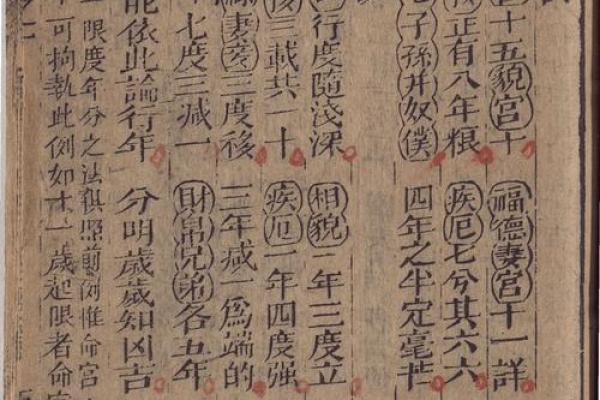 十五貌宮十 福德妻宮十一詳
正有八年粮 疾厄七兮其六六
子孫并奴僕 四年之半定毫芒
行度隨浅深 相貌二年三度立
三載共一十 疾厄一年四度强
妻妾三度移 三年减一為端的
七度三减一 財帛兄弟各五年
能依此論行年 分明歲歲知凶吉
一限度年分之法俱照前例惟命宮
可拘執此例如十一歲起限者命